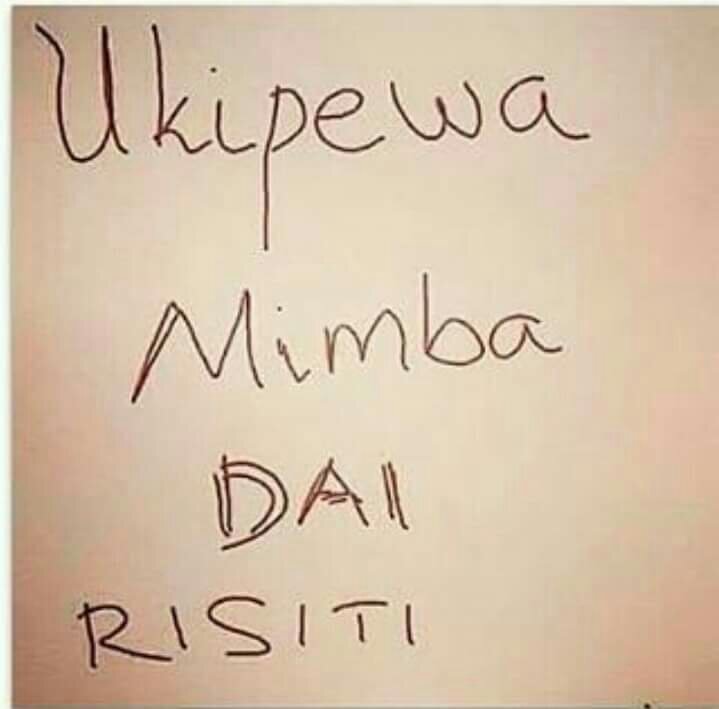 Ukipewa
Mimba
DAI
RISITI